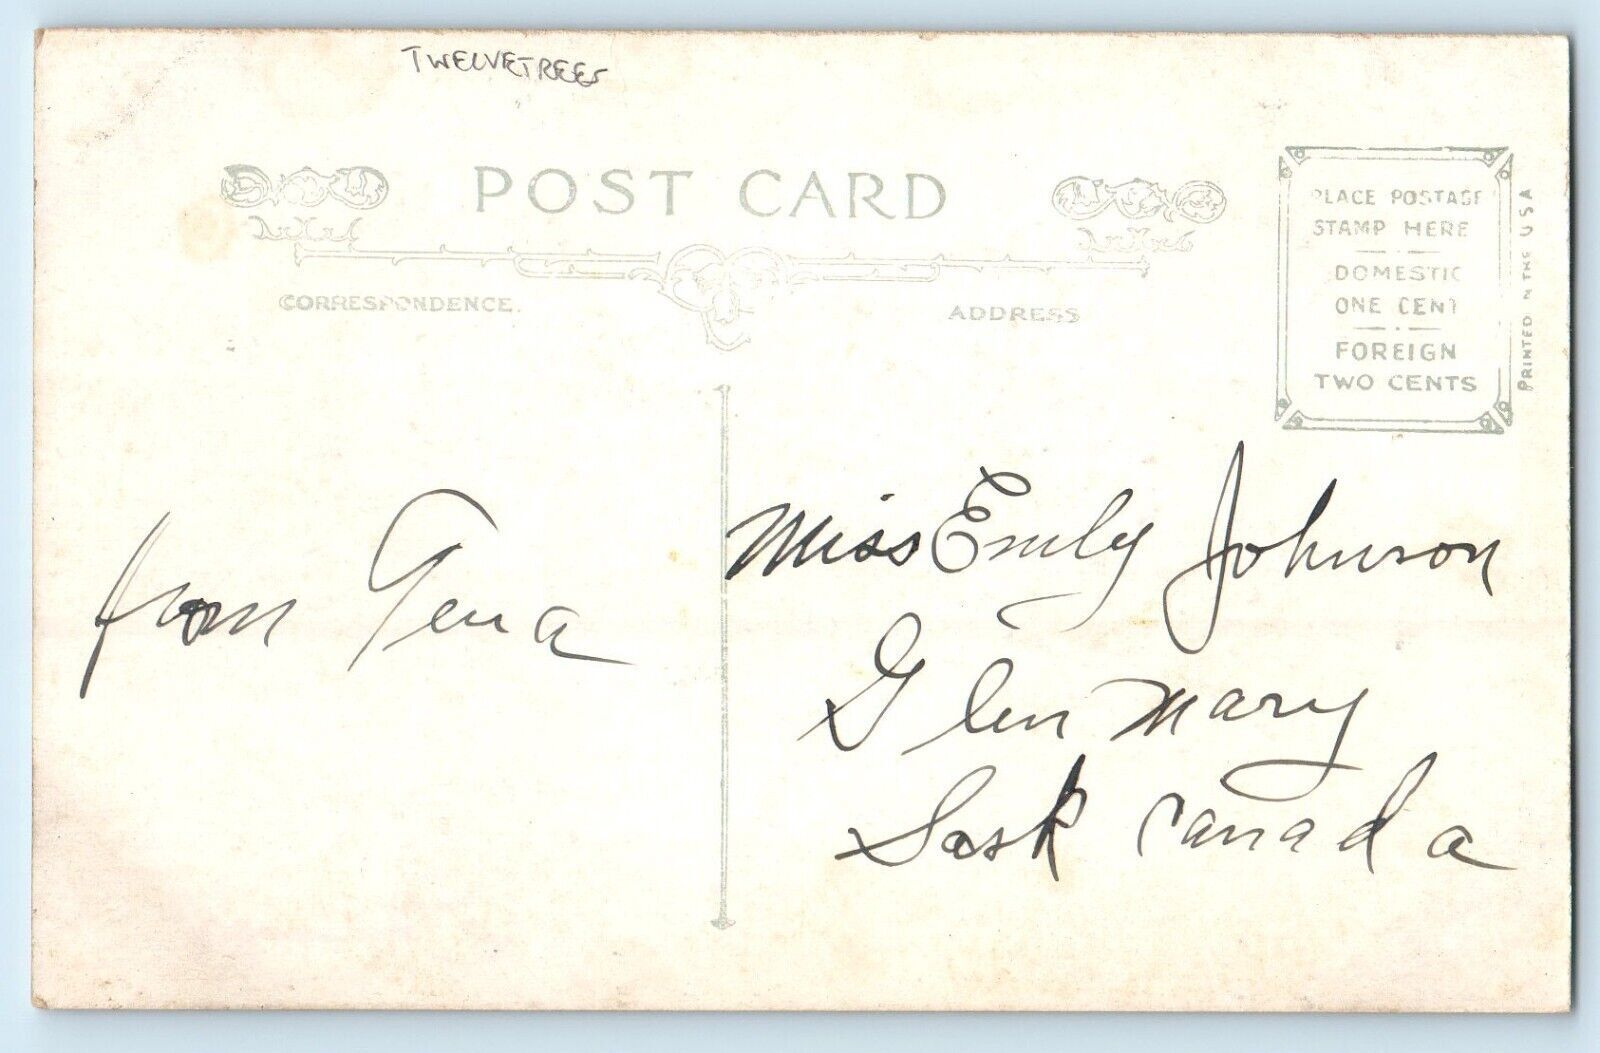 TWELVETREES
POST CARD
CORRESPONDENCE.
ADDRESS
PLACE POSTAGE
STAMP HERE
DOMESTIC
ONE CENT
FOREIGN
TWO CENTS
PRINTED IN THE USA
from Tena
Miss Emily Johnson
Glen Mary
Sask Canada